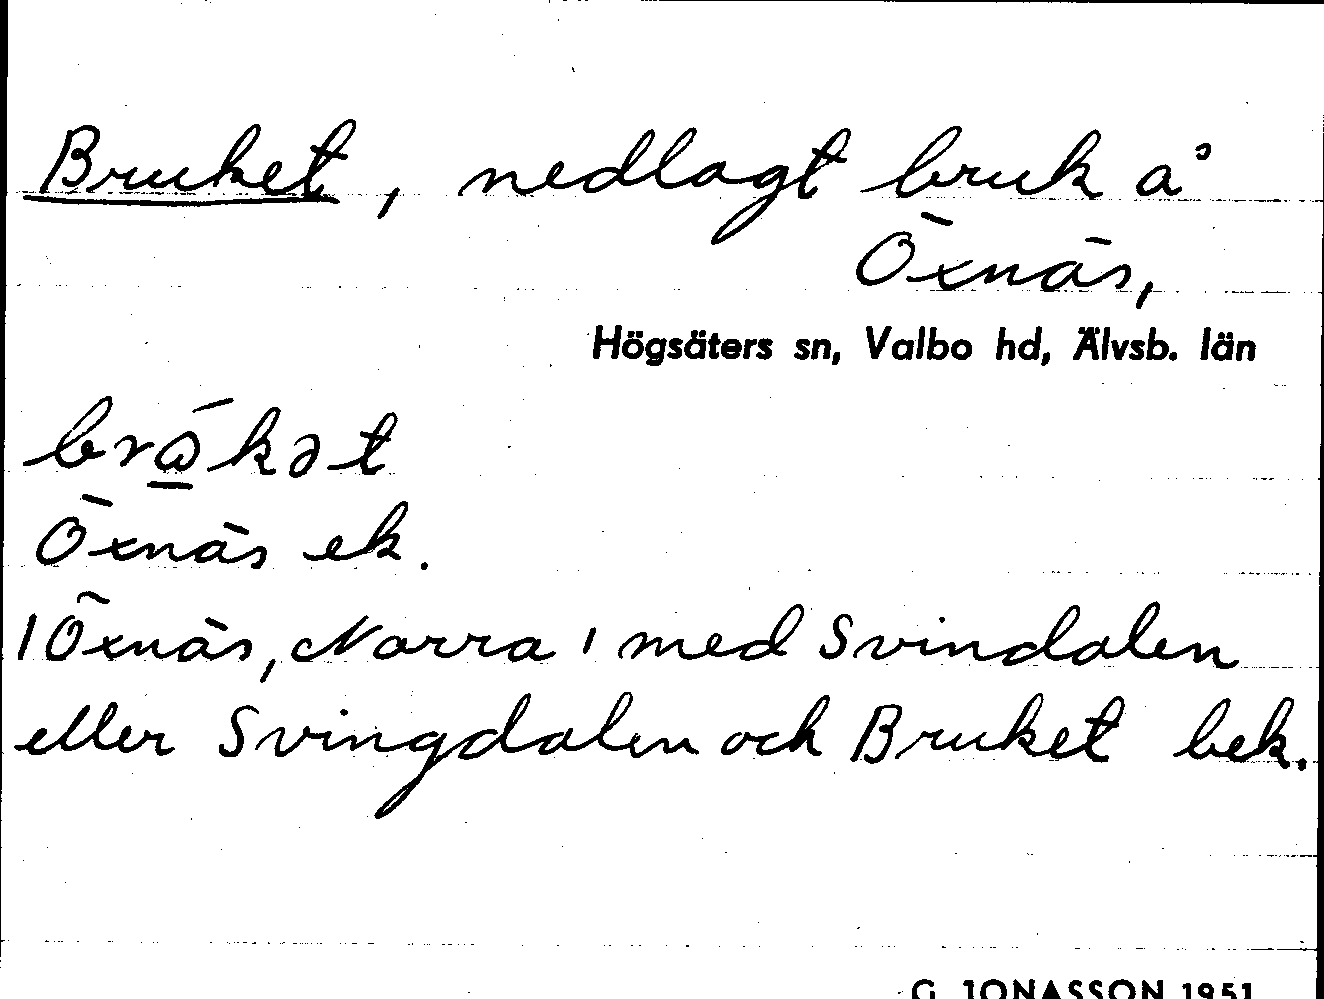 Bruket, nedlagt bruk å
Öxnäs,
Högsäters sn, Valbo hd, Älvsb. län
Öxnäs ek.
/Öxnäs, Norra/ med Svindalen
eller Svingdalen och Bruket bek.
G. JONASSON 1951